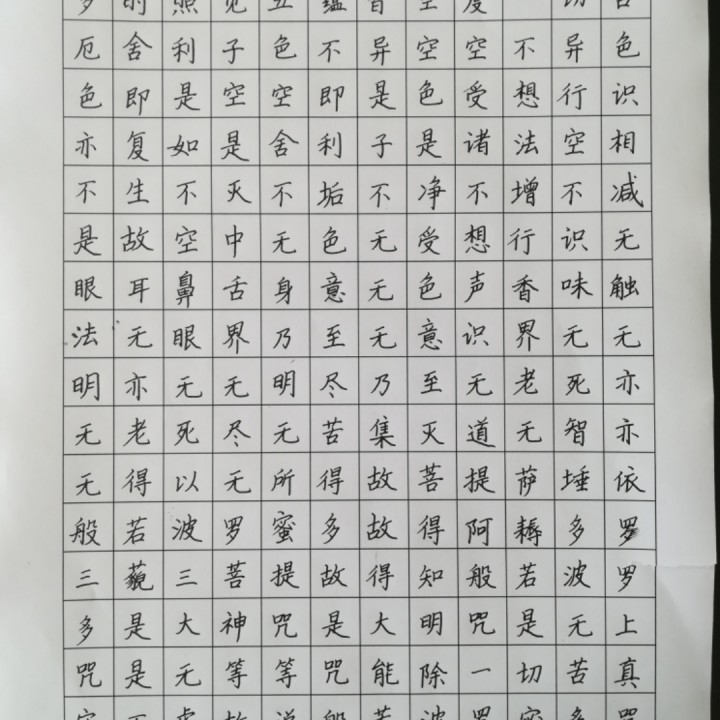 多照见五蕴皆空度切苦
厄舍利子色不异空空不异色
色即是空空即是色受想行识
亦复如是舍利子是诸法空相
不生不灭不垢不净不增不减
是故空中无色无受想行识无
眼耳鼻舌身意无色声香味触
法无眼界乃至无意识界无无
明亦无无明尽乃至无老死亦
无老死尽无苦集灭道无智亦
无得以无所得故菩提萨埵依
般若波罗蜜多故得阿耨多罗
三藐三菩提故得知般若波罗
多是大神咒是大明咒是无上
咒是无等等咒能除一切苦真
实不虚故说般若波罗多咒